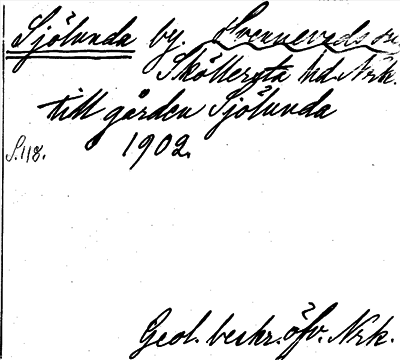 Sjölunda by. Svennevads sn
Sköllersta hd Nrk.
till gården Sjölunda
S.118. 1902.
Geol. beskr. öfv. Nrk.